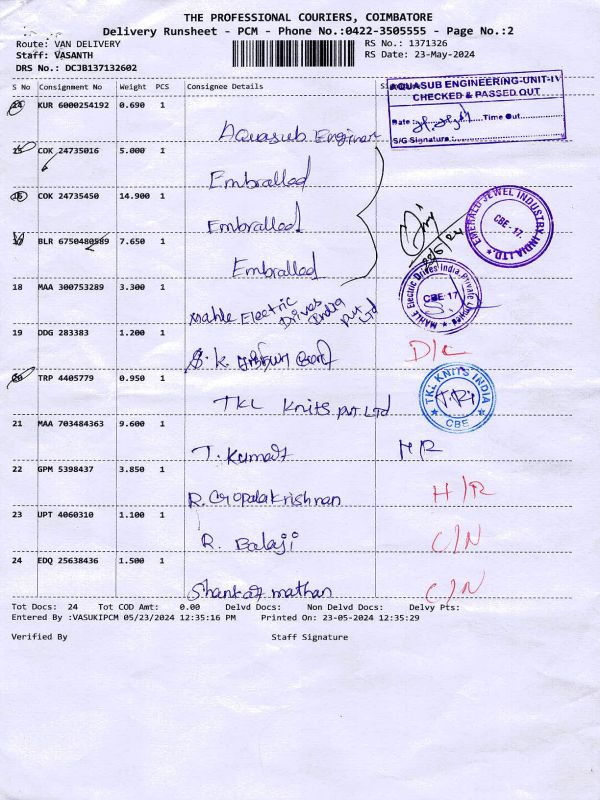 THE PROFESSIONAL COURIERS, COIMBATORE
Delivery Runsheet - PCM - Phone No.:0422-3505555 - Page No.:2
Route: VAN DELIVERY RS No.: 1371326
Staff: VASANTH RS Date: 23-May-2024
DRS No.: DCJB137132602
S No Consignment No Weight PCS Consignee Details
AQUASUB ENGINEERING-UNIT-IV
CHECKED & PASSED OUT
Date : Time Out
S/G Signature
KUR 6000254192 0.690 1
Aquasub Enginer
15 COK 24735016 5.000 1
Embralled
16 COK 24735450 14.900 1
Embralled
17 BLR 6750480589 7.650 1
Embralled
EMERALD JEWEL INDUSTRY INDIA LTD. CBE - 17.
18 MAA 300753289 3.300 1
Mahle Electric Drives India Pvt Ltd
MAHLE Electric Drives India Private Limited CBE-17
19 DDG 283383 1.200 1
S. K. D/C
20 TRP 4405779 0.950 1
TKL Knits Pvt Ltd
TKL KNITS INDIA CBE
21 MAA 703484363 9.600 1
T. Kumar HR
22 GPM 5398437 3.850 1
R. Gopalakrishnan H/R
23 UPT 4060310 1.100 1
R. Balaji C/N
24 EDQ 25638436 1.500 1
mathan C/N
Tot Docs: 24 Tot COD Amt: 0.00 Delvd Docs: Non Delvd Docs: Delvy Pts:
Entered By :VASUKIPCM 05/23/2024 12:35:16 PM Printed On: 23-05-2024 12:35:29
Verified By Staff Signature